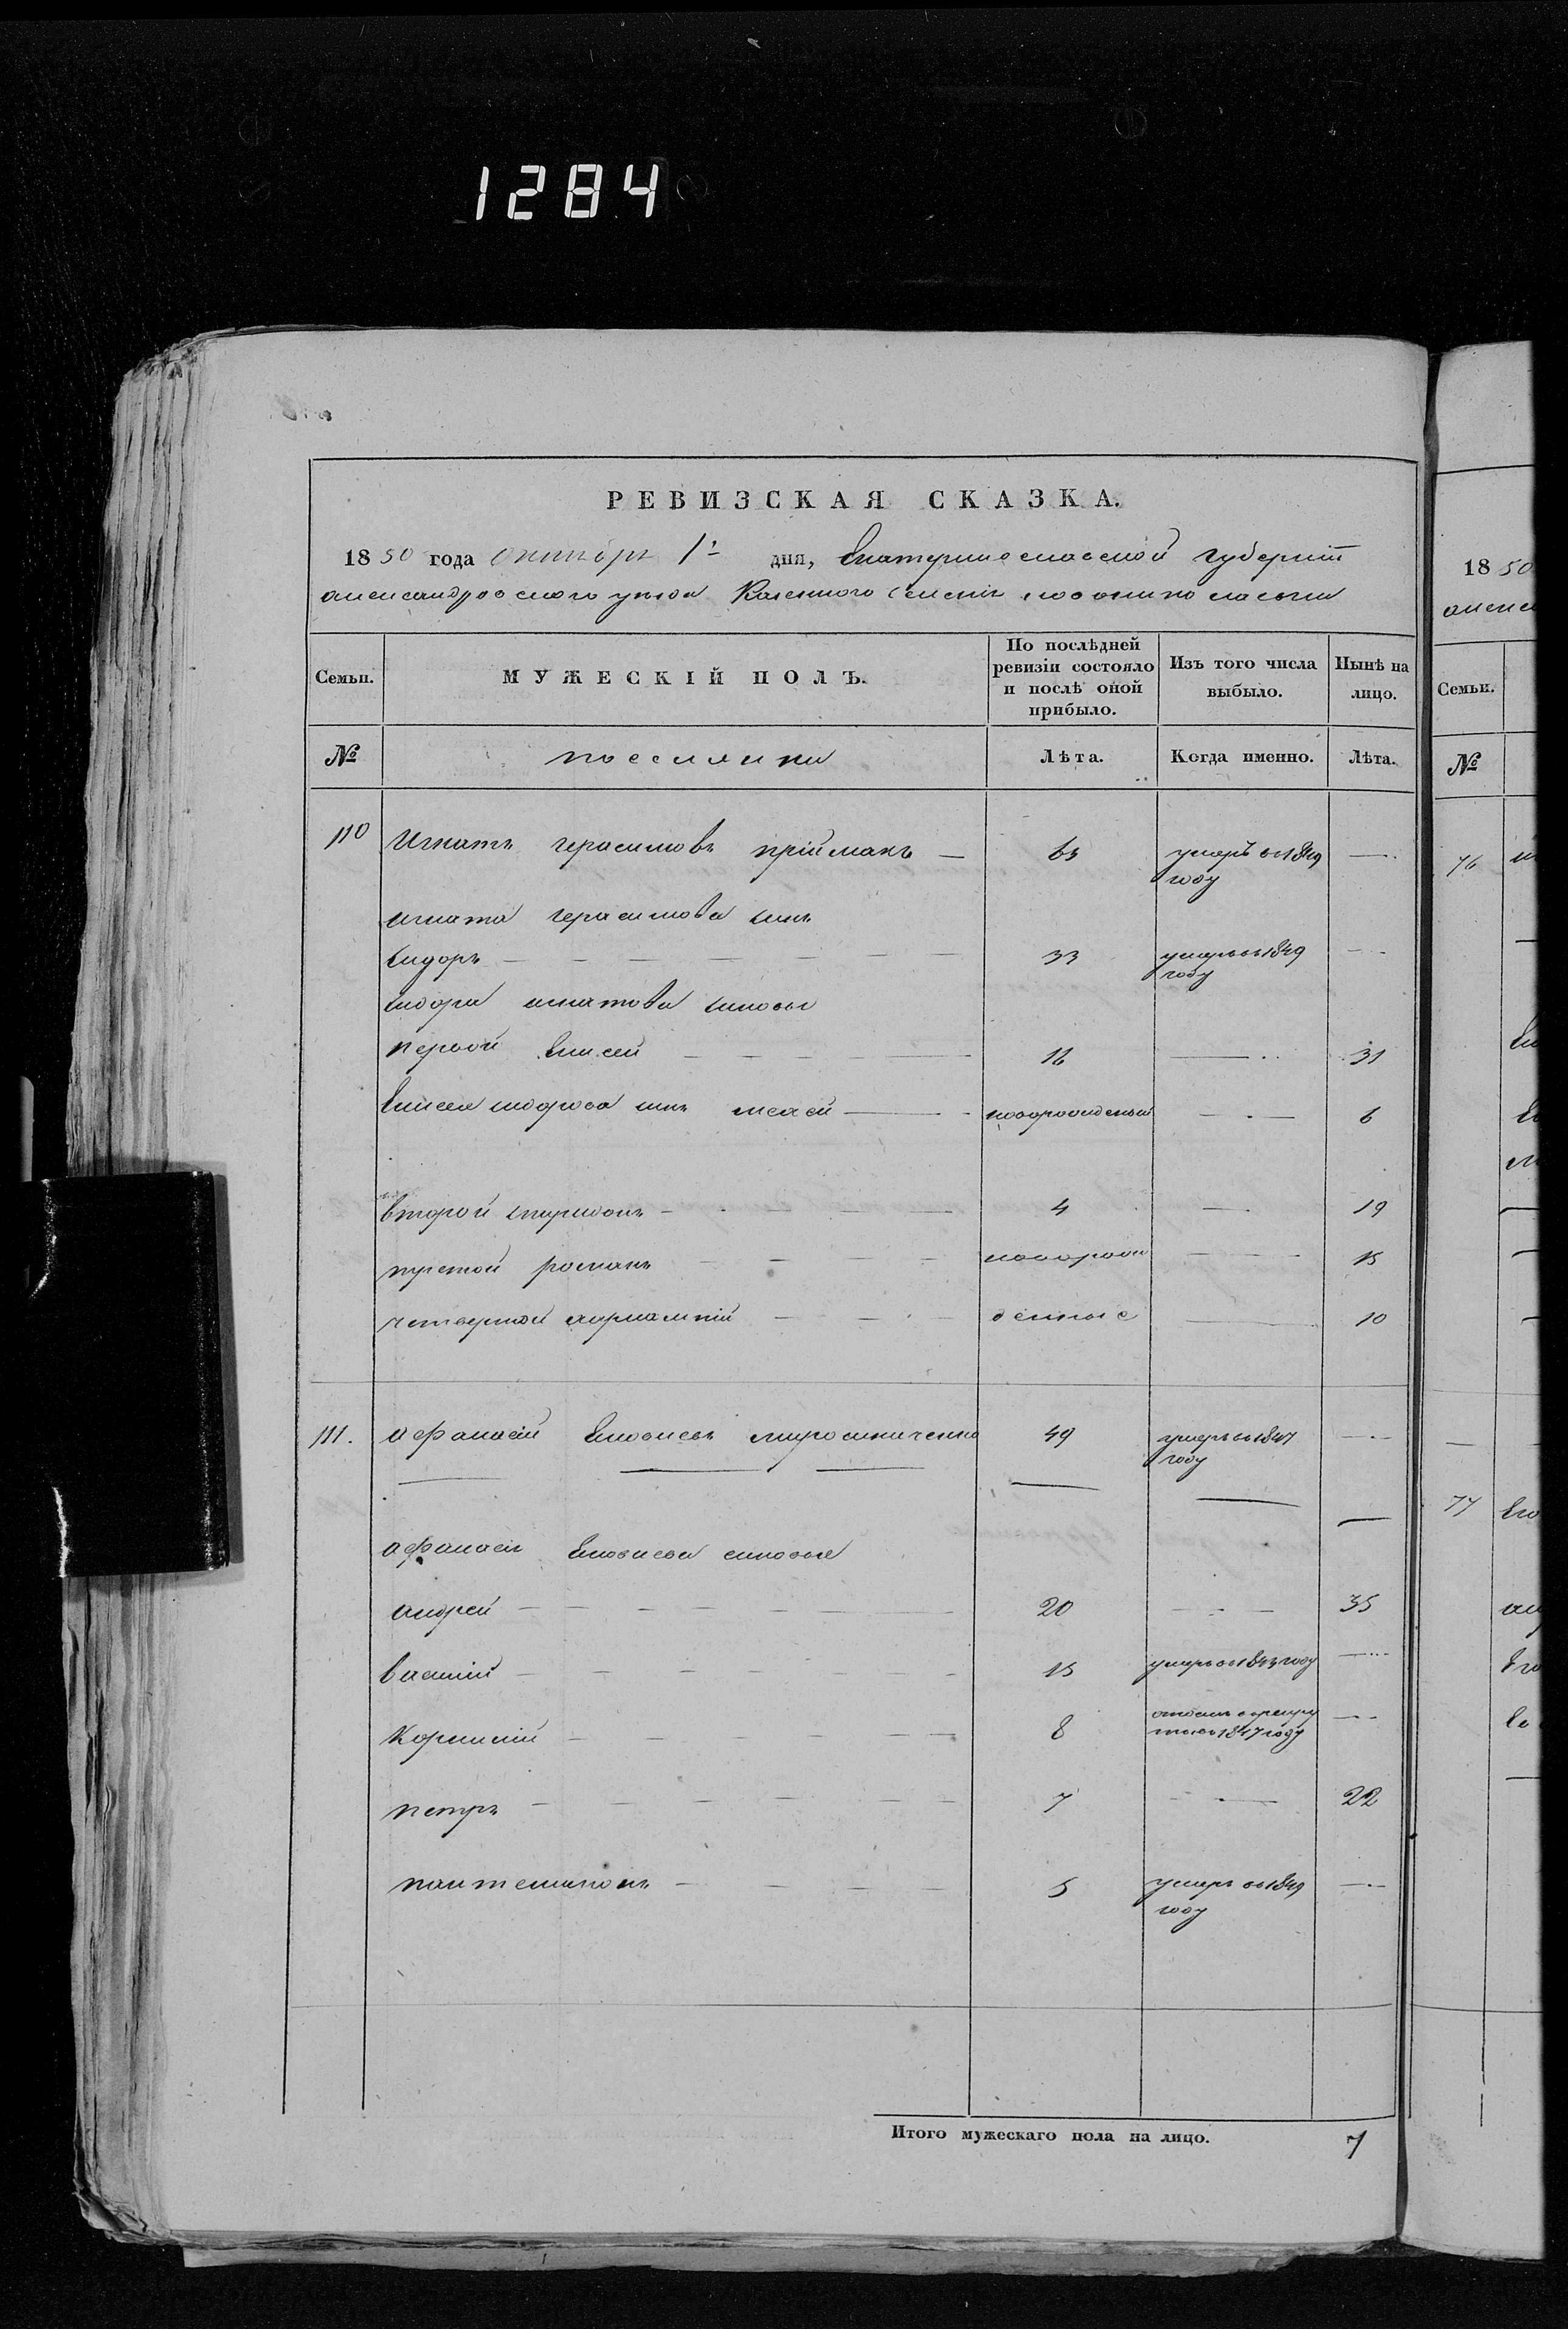 1284
РЕВИЗСКАЯ СКАЗКА.
1850 года октября 1го дня, Екатеринославской губернии
александровского уезда Казенного селения новониколаевки
Семьи. МУЖЕСКІЙ ПОЛЪ. По послѣдней ревизіи состояло и послѣ оной прибыло. Изъ того числа выбыло. Нынѣ на лицо.
№ поселянки Лѣта. Когда именно. Лѣта.
110 Игнатъ герасимовъ приймакъ — 63 умеръ въ 1849 году —
игната герасимова сынъ
сидоръ — 33 умеръ въ 1849 году —
сидора игнатова сыновья
первой Елисей — 16 — 31
Елисея сидорова сынъ — новорожденный — 6
второй спиридонъ — 4 — 19
третой романъ — новорож — 15
четвертой — денные — 10
111. афанасій мирошниченко 49 умеръ въ 1847 году —
афанасія сыновья
андрей — 20 — 35
василій — 15 умеръ въ 1843 году —
Корнилій — 8 отданъ в рекруты въ 1847 году —
петръ — 7 — 22
пантелимонъ — 5 умеръ въ 1849 году —
Итого мужескаго пола на лицо. 7
1850
Семьи.
№
76
77